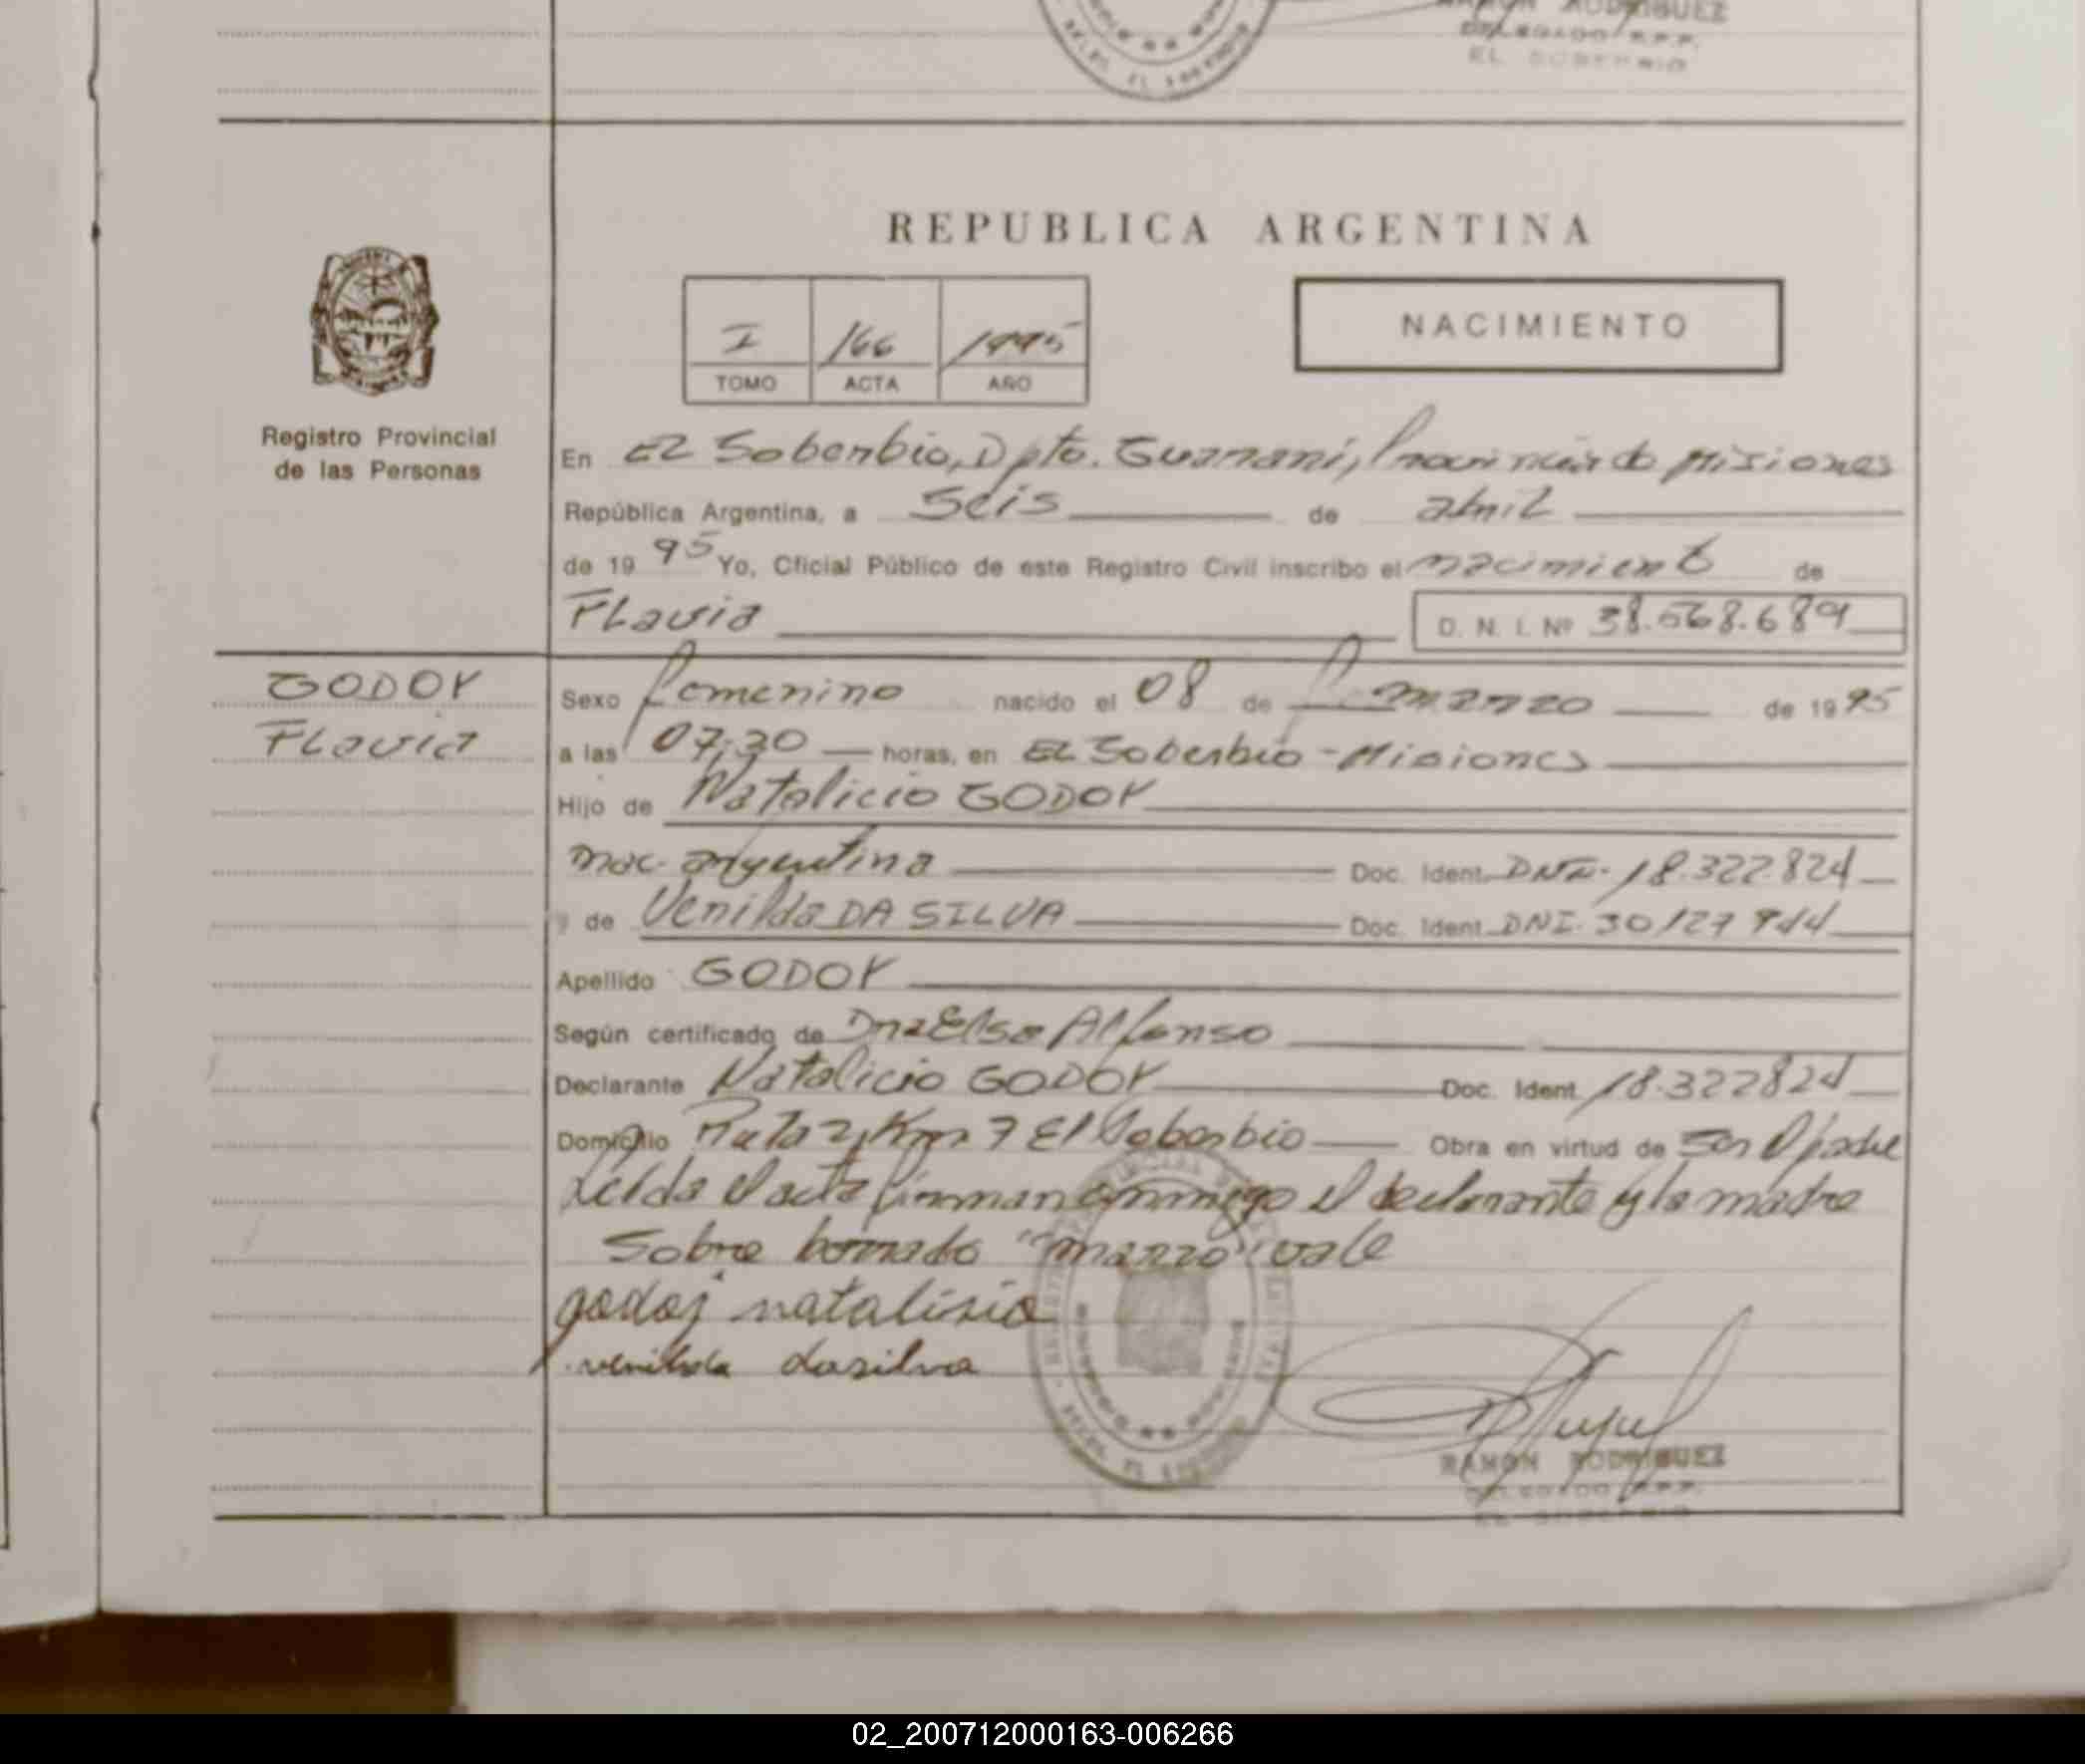 RAMON RODRIGUEZ
DELEGADO R.P.P.
EL SOBERBIO
REPUBLICA ARGENTINA
I 166 1995
TOMO ACTA AÑO
NACIMIENTO
Registro Provincial
de las Personas
En El Soberbio, Dpto. Guarani, Provincia de Misiones
República Argentina, a seis de abril
de 1995 Yo, Oficial Público de este Registro Civil inscribo el nacimiento de
Flavia D. N. I. Nº 38.568.689
GODOY
Flavia
Sexo femenino nacido el 08 de marzo de 1995
a las 07:30 horas, en El Soberbio - Misiones
Hijo de Natalicio GODOY
nac. argentina Doc. Ident. DNI. 18.322.824
y de Venilda DA SILVA Doc. Ident. DNI. 30127944
Apellido GODOY
Según certificado de Dra Elsa Alfonso
Declarante Natalicio GODOY Doc. Ident. 18.322824
Domicilio Ruta 2, Km 7 El Soberbio Obra en virtud de ser el padre
Leída el acta firman conmigo el declarante y la madre
Sobre borrado "marzo" vale
godoj natalisio
venilda dasilva
RAMON RODRIGUEZ
DELEGADO R.P.P.
EL SOBERBIO
02_200712000163-006266